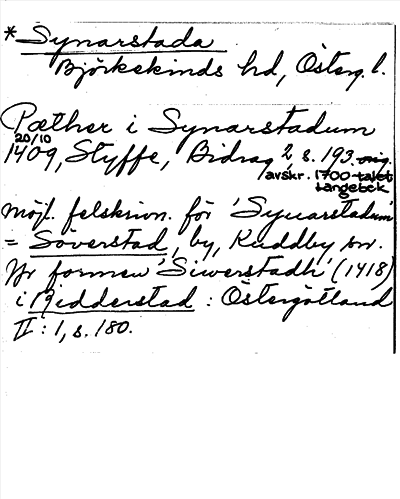 * Synarstada
Björkekinds hd, Österg. l.
Pæther i Synarstadum
20/10
1409, Styffe, Bidrag 2, s. 193. orig.
avskr. 1700-talet
Langebek
möjl. felskrivn. för 'Synarstadum'
= Söverstad, by, Kuddby sn.
Jfr formen 'Siwerstadh' (1418)
i Ridderstad: Östergötland
II: 1, s. 180.